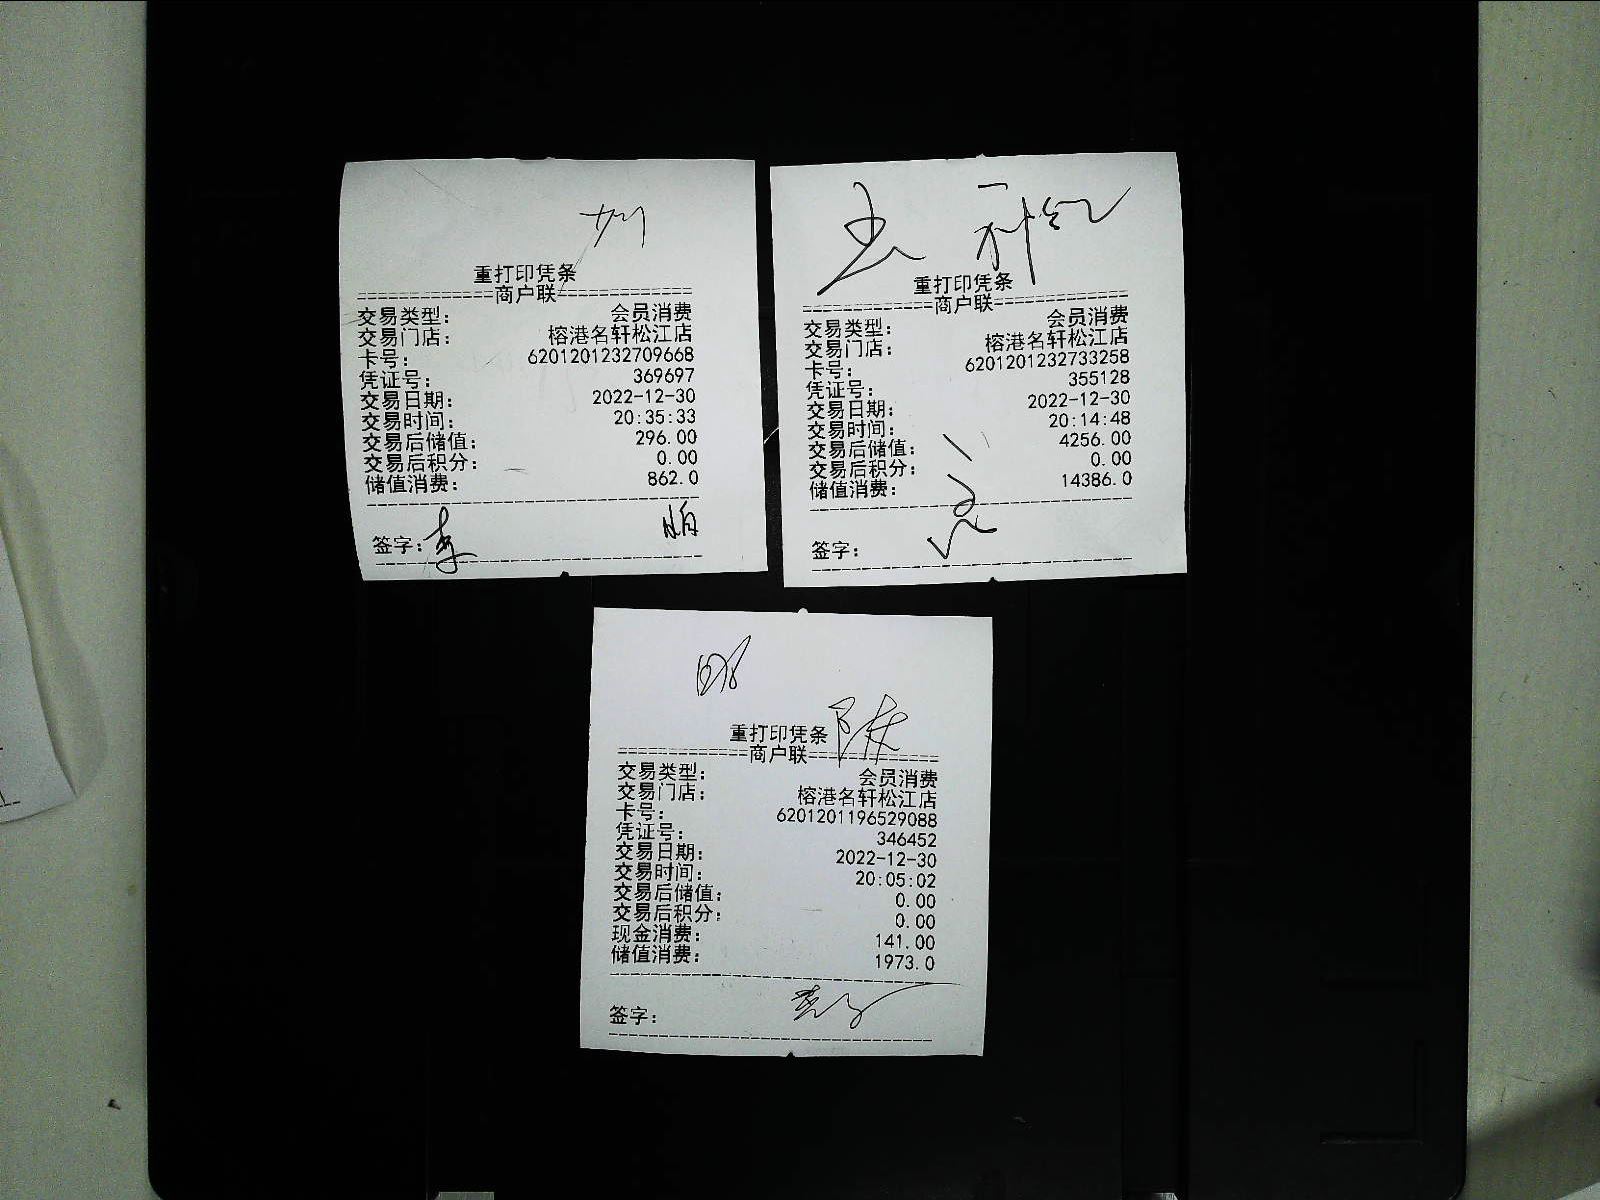 重打印凭条
=============商户联=============
交易类型: 会员消费
交易门店: 榕港名轩松江店
卡号: 6201201232709668
凭证号: 369697
交易日期: 2022-12-30
交易时间: 20:35:33
交易后储值: 296.00
交易后积分: 0.00
储值消费: 862.0
签字:
重打印凭条
=============商户联=============
交易类型: 会员消费
交易门店: 榕港名轩松江店
卡号: 6201201232733258
凭证号: 355128
交易日期: 2022-12-30
交易时间: 20:14:48
交易后储值: 4256.00
交易后积分: 0.00
储值消费: 14386.0
签字:
重打印凭条
=============商户联=============
交易类型: 会员消费
交易门店: 榕港名轩松江店
卡号: 6201201196529088
凭证号: 346452
交易日期: 2022-12-30
交易时间: 20:05:02
交易后储值: 0.00
交易后积分: 0.00
现金消费: 141.00
储值消费: 1973.0
签字: